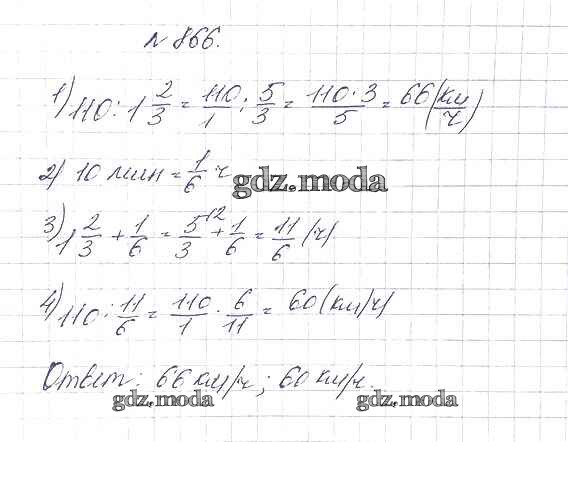 № 866.
1) 110 : 1 2/3 = 110/1 : 5/3 = 110·3/5 = 66 (км/ч)
2) 10 мин = 1/6 ч
gdz.moda
3) 1 2/3 + 1/6 = 5/3 \2 + 1/6 = 11/6 (ч)
4) 110 : 11/6 = 110/1 · 6/11 = 60 (км/ч)
Ответ: 66 км/ч; 60 км/ч.
gdz.moda gdz.moda